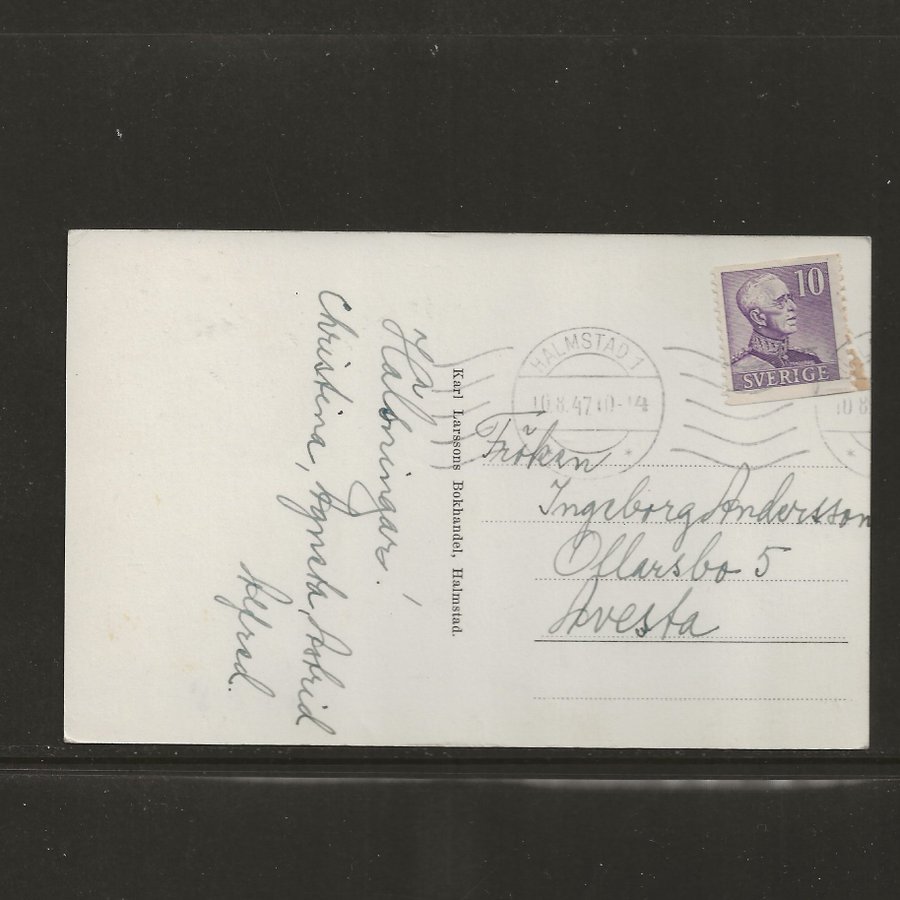 Hälsningar!
Christina, Agneta, Astrid
Alfred.
Karl Larssons Bokhandel, Halmstad.
10
SVERIGE
HALMSTAD 1
10.8.47 10-14
10 8
Fröken
Ingeborg Andersson
Ollarsbo 5
Avesta